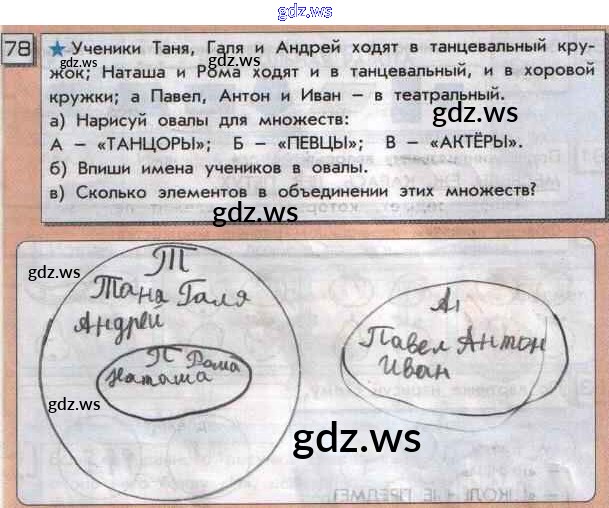 gdz.ws
78 ★ Ученики Таня, Галя и Андрей ходят в танцевальный кру-
жок; Наташа и Рома ходят и в танцевальный, и в хоровой
кружки; а Павел, Антон и Иван – в театральный.
gdz.ws
а) Нарисуй овалы для множеств:
А – «ТАНЦОРЫ»; Б – «ПЕВЦЫ»; В – «АКТЁРЫ».
б) Впиши имена учеников в овалы.
в) Сколько элементов в объединении этих множеств?
gdz.ws
gdz.ws
Т
Таня Галя
Андрей
П Рома
Наташа
А
Павел Антон
Иван
gdz.ws
gdz.ws